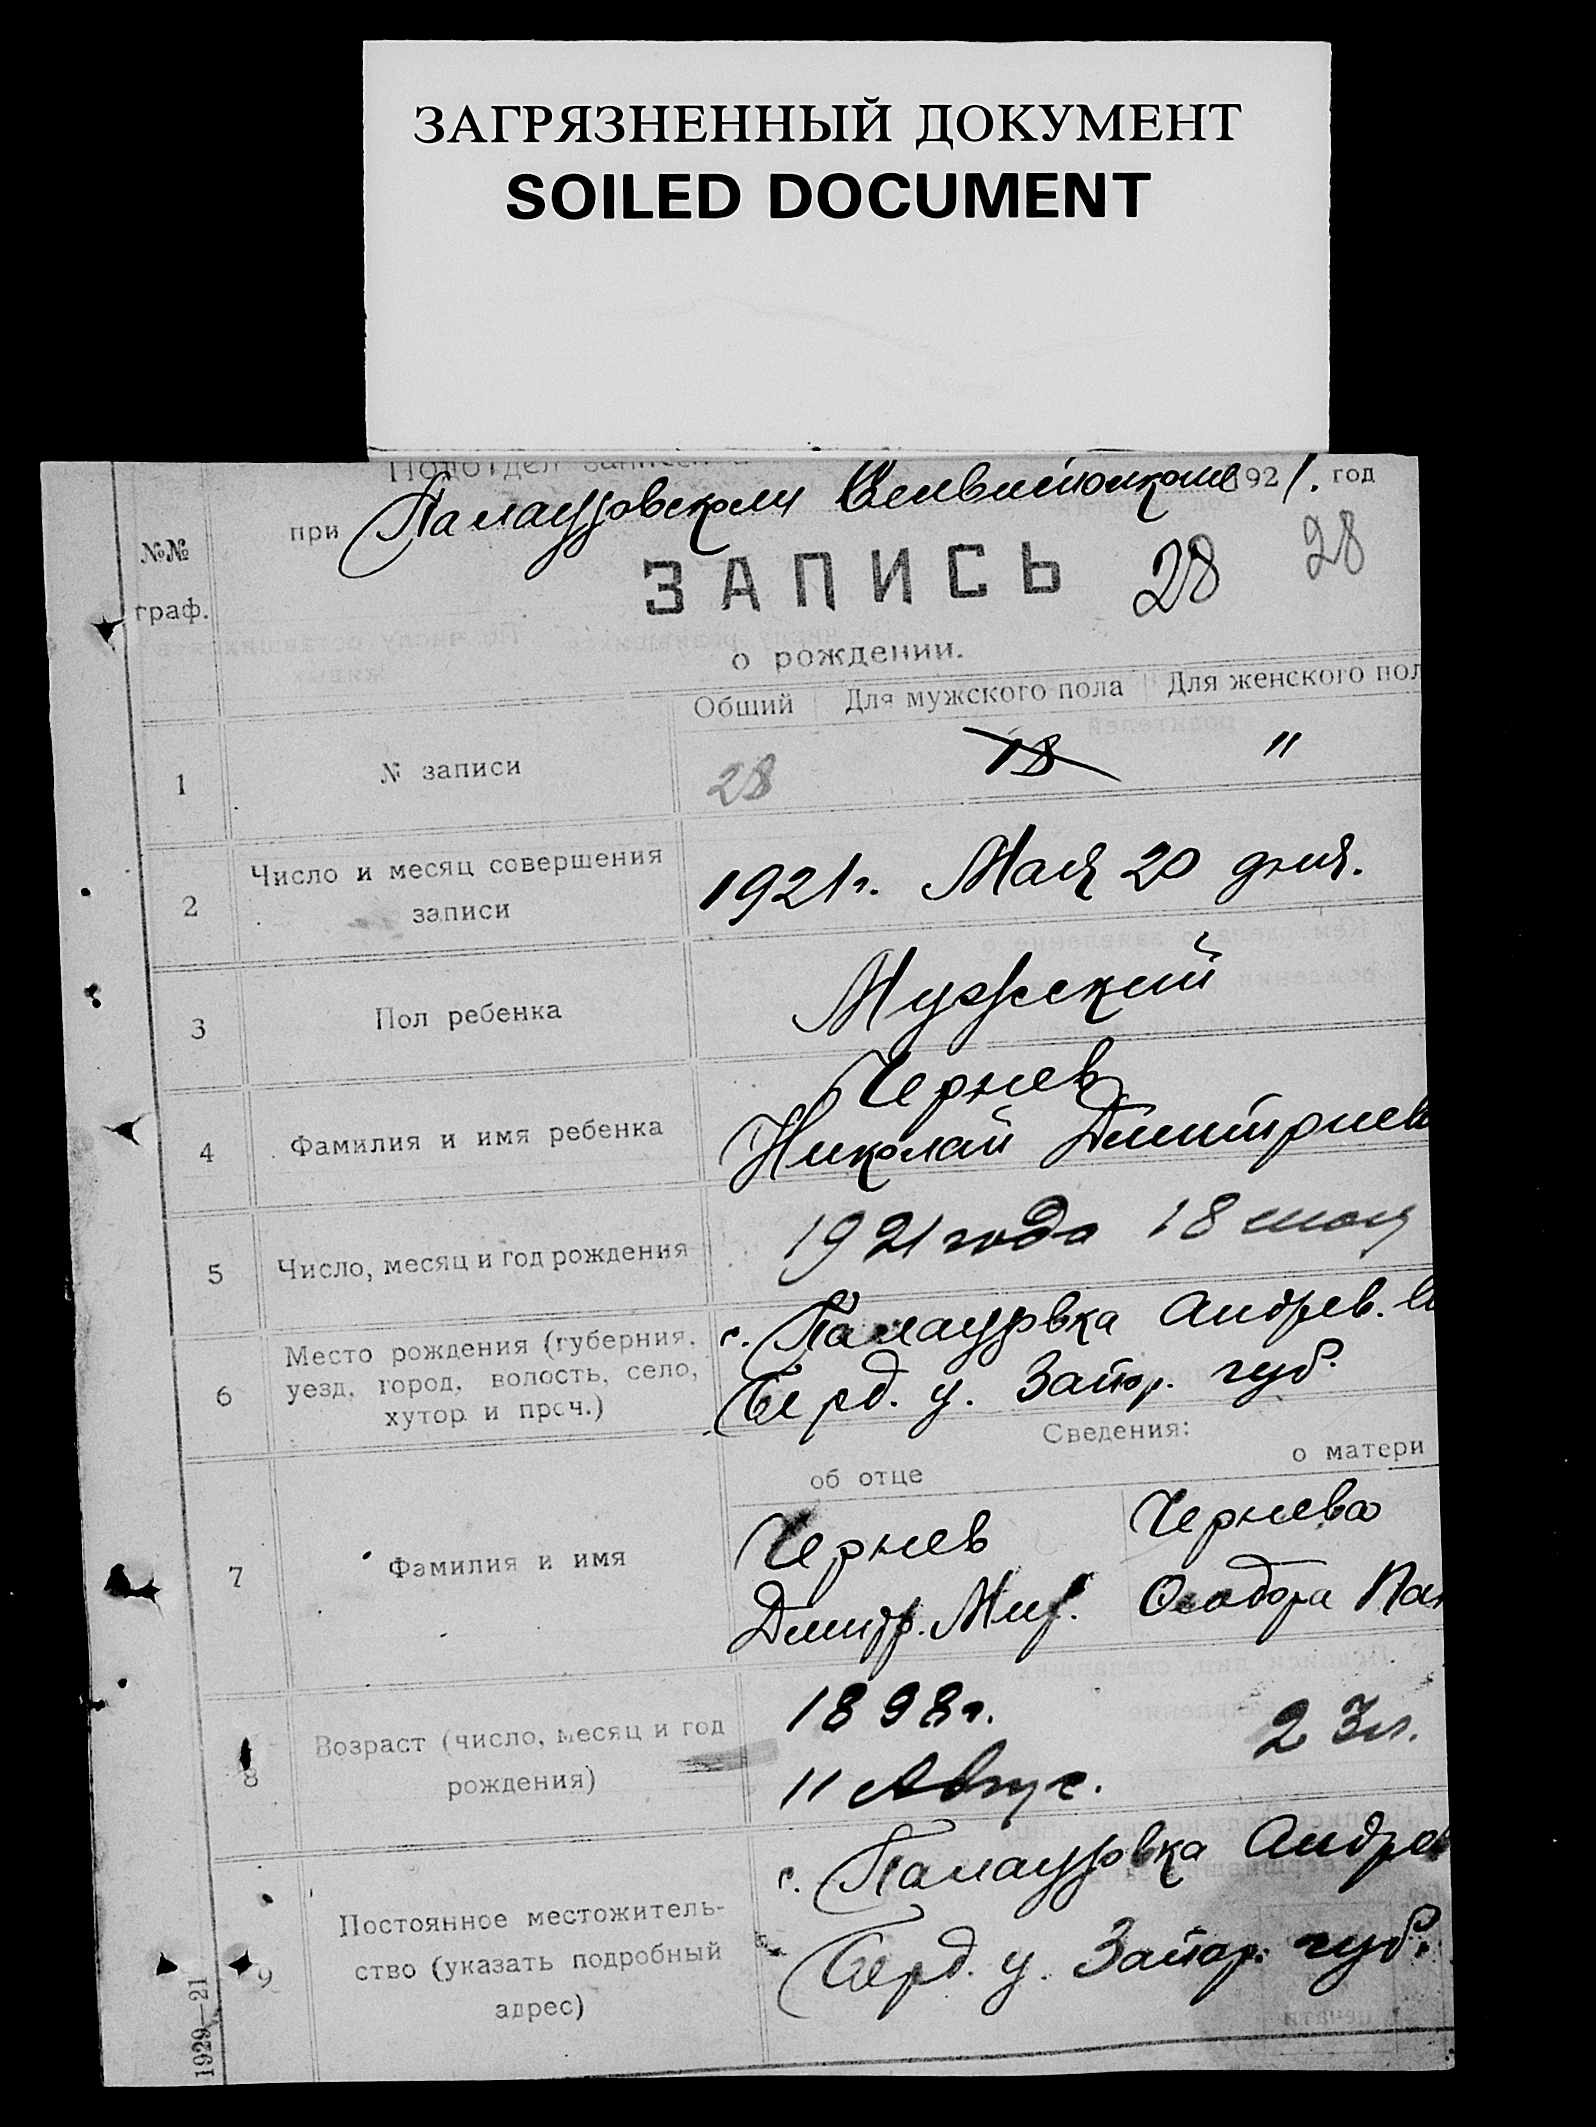 ЗАГРЯЗНЕННЫЙ ДОКУМЕНТ
SOILED DOCUMENT
при 1921. год
№№ граф.
ЗАПИСЬ 28 28
о рождении.
Общий Для мужского пола Для женского пол
1 № записи 28 18 "
2 Число и месяц совершения записи 1921 г. Мая 20 дня.
3 Пол ребенка Мужский
4 Фамилия и имя ребенка Чернев
Николай Дмитриев
5 Число, месяц и год рождения 1921 года 18 мая
6 Место рождения (губерния, уезд, город, волость, село, хутор и проч.) с. Андрев.
Берд. у. Запор. губ.
Сведения:
об отце о матери
7 Фамилия и имя Чернев Чернева
Дмитр. Ми
8 Возраст (число, месяц и год рождения) 1898 г. 23 л.
11 Авгус.
9 Постоянное местожитель-
ство (указать подробный
адрес) с. Андре
Берд. у. Запор. губ.
1929—21